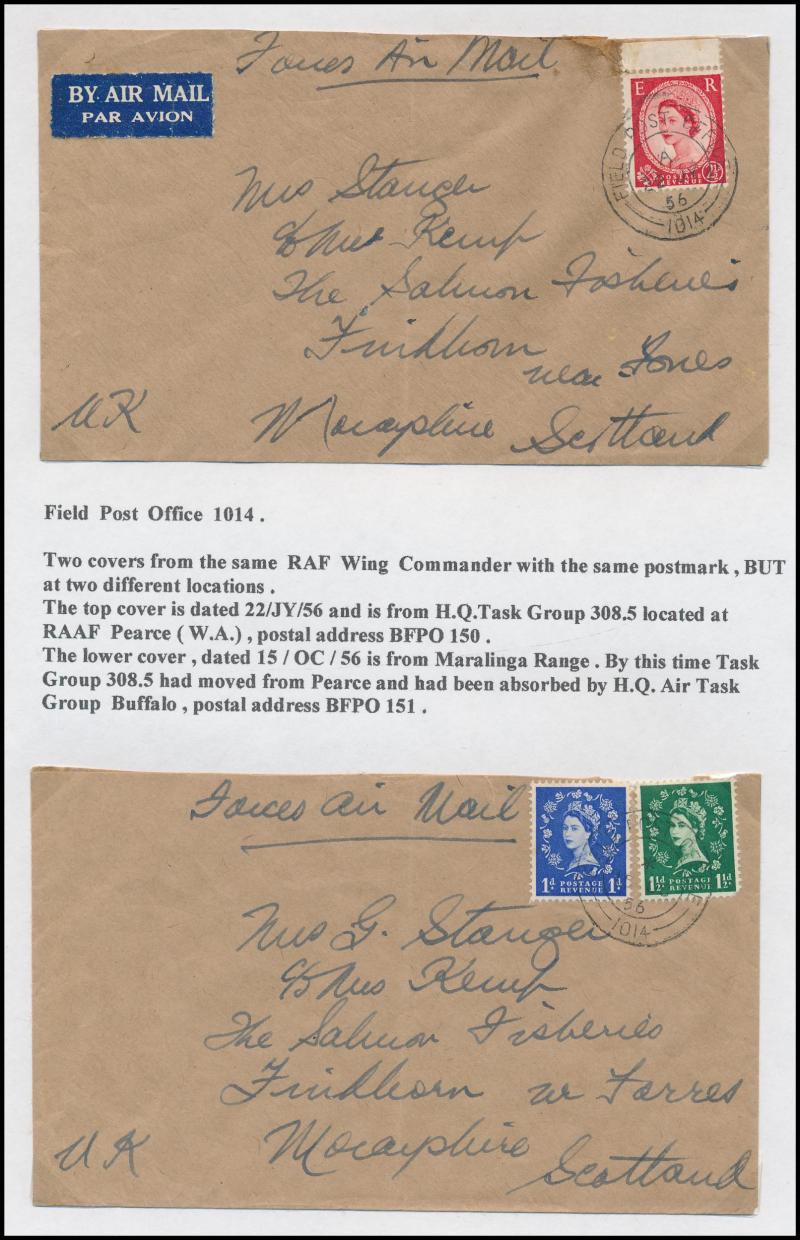 Forces Air Mail
BY AIR MAIL
PAR AVION
E R
POSTAGE
REVENUE
2½
FIELD POST OFFICE
A
22 JY
56
1014
Mrs Stanger
c/o Mrs Kemp
The Salmon Fisheries
Findhorn
near Forres
UK
Morayshire Scotland
Field Post Office 1014 .
Two covers from the same RAF Wing Commander with the same postmark , BUT
at two different locations .
The top cover is dated 22/JY/56 and is from H.Q.Task Group 308.5 located at
RAAF Pearce ( W.A.) , postal address BFPO 150 .
The lower cover , dated 15 / OC / 56 is from Maralinga Range . By this time Task
Group 308.5 had moved from Pearce and had been absorbed by H.Q. Air Task
Group Buffalo , postal address BFPO 151 .
Forces Air Mail
1d POSTAGE REVENUE 1d
1½d POSTAGE REVENUE 1½d
56
1014
Mrs G. Stanger
c/o Mrs Kemp
The Salmon Fisheries
Findhorn nr Forres
UK
Morayshire
Scotland